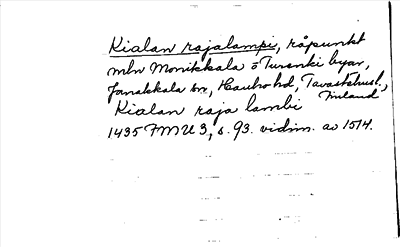 Kialan rajalampi, råpunkt
mln Monikkala o Turenki byar,
Janakkala sn, Hauho hd, Tavastehusl.,
Finland
Kialan raja lambi
1435 FMU 3, s. 93. vidim. av 1514.